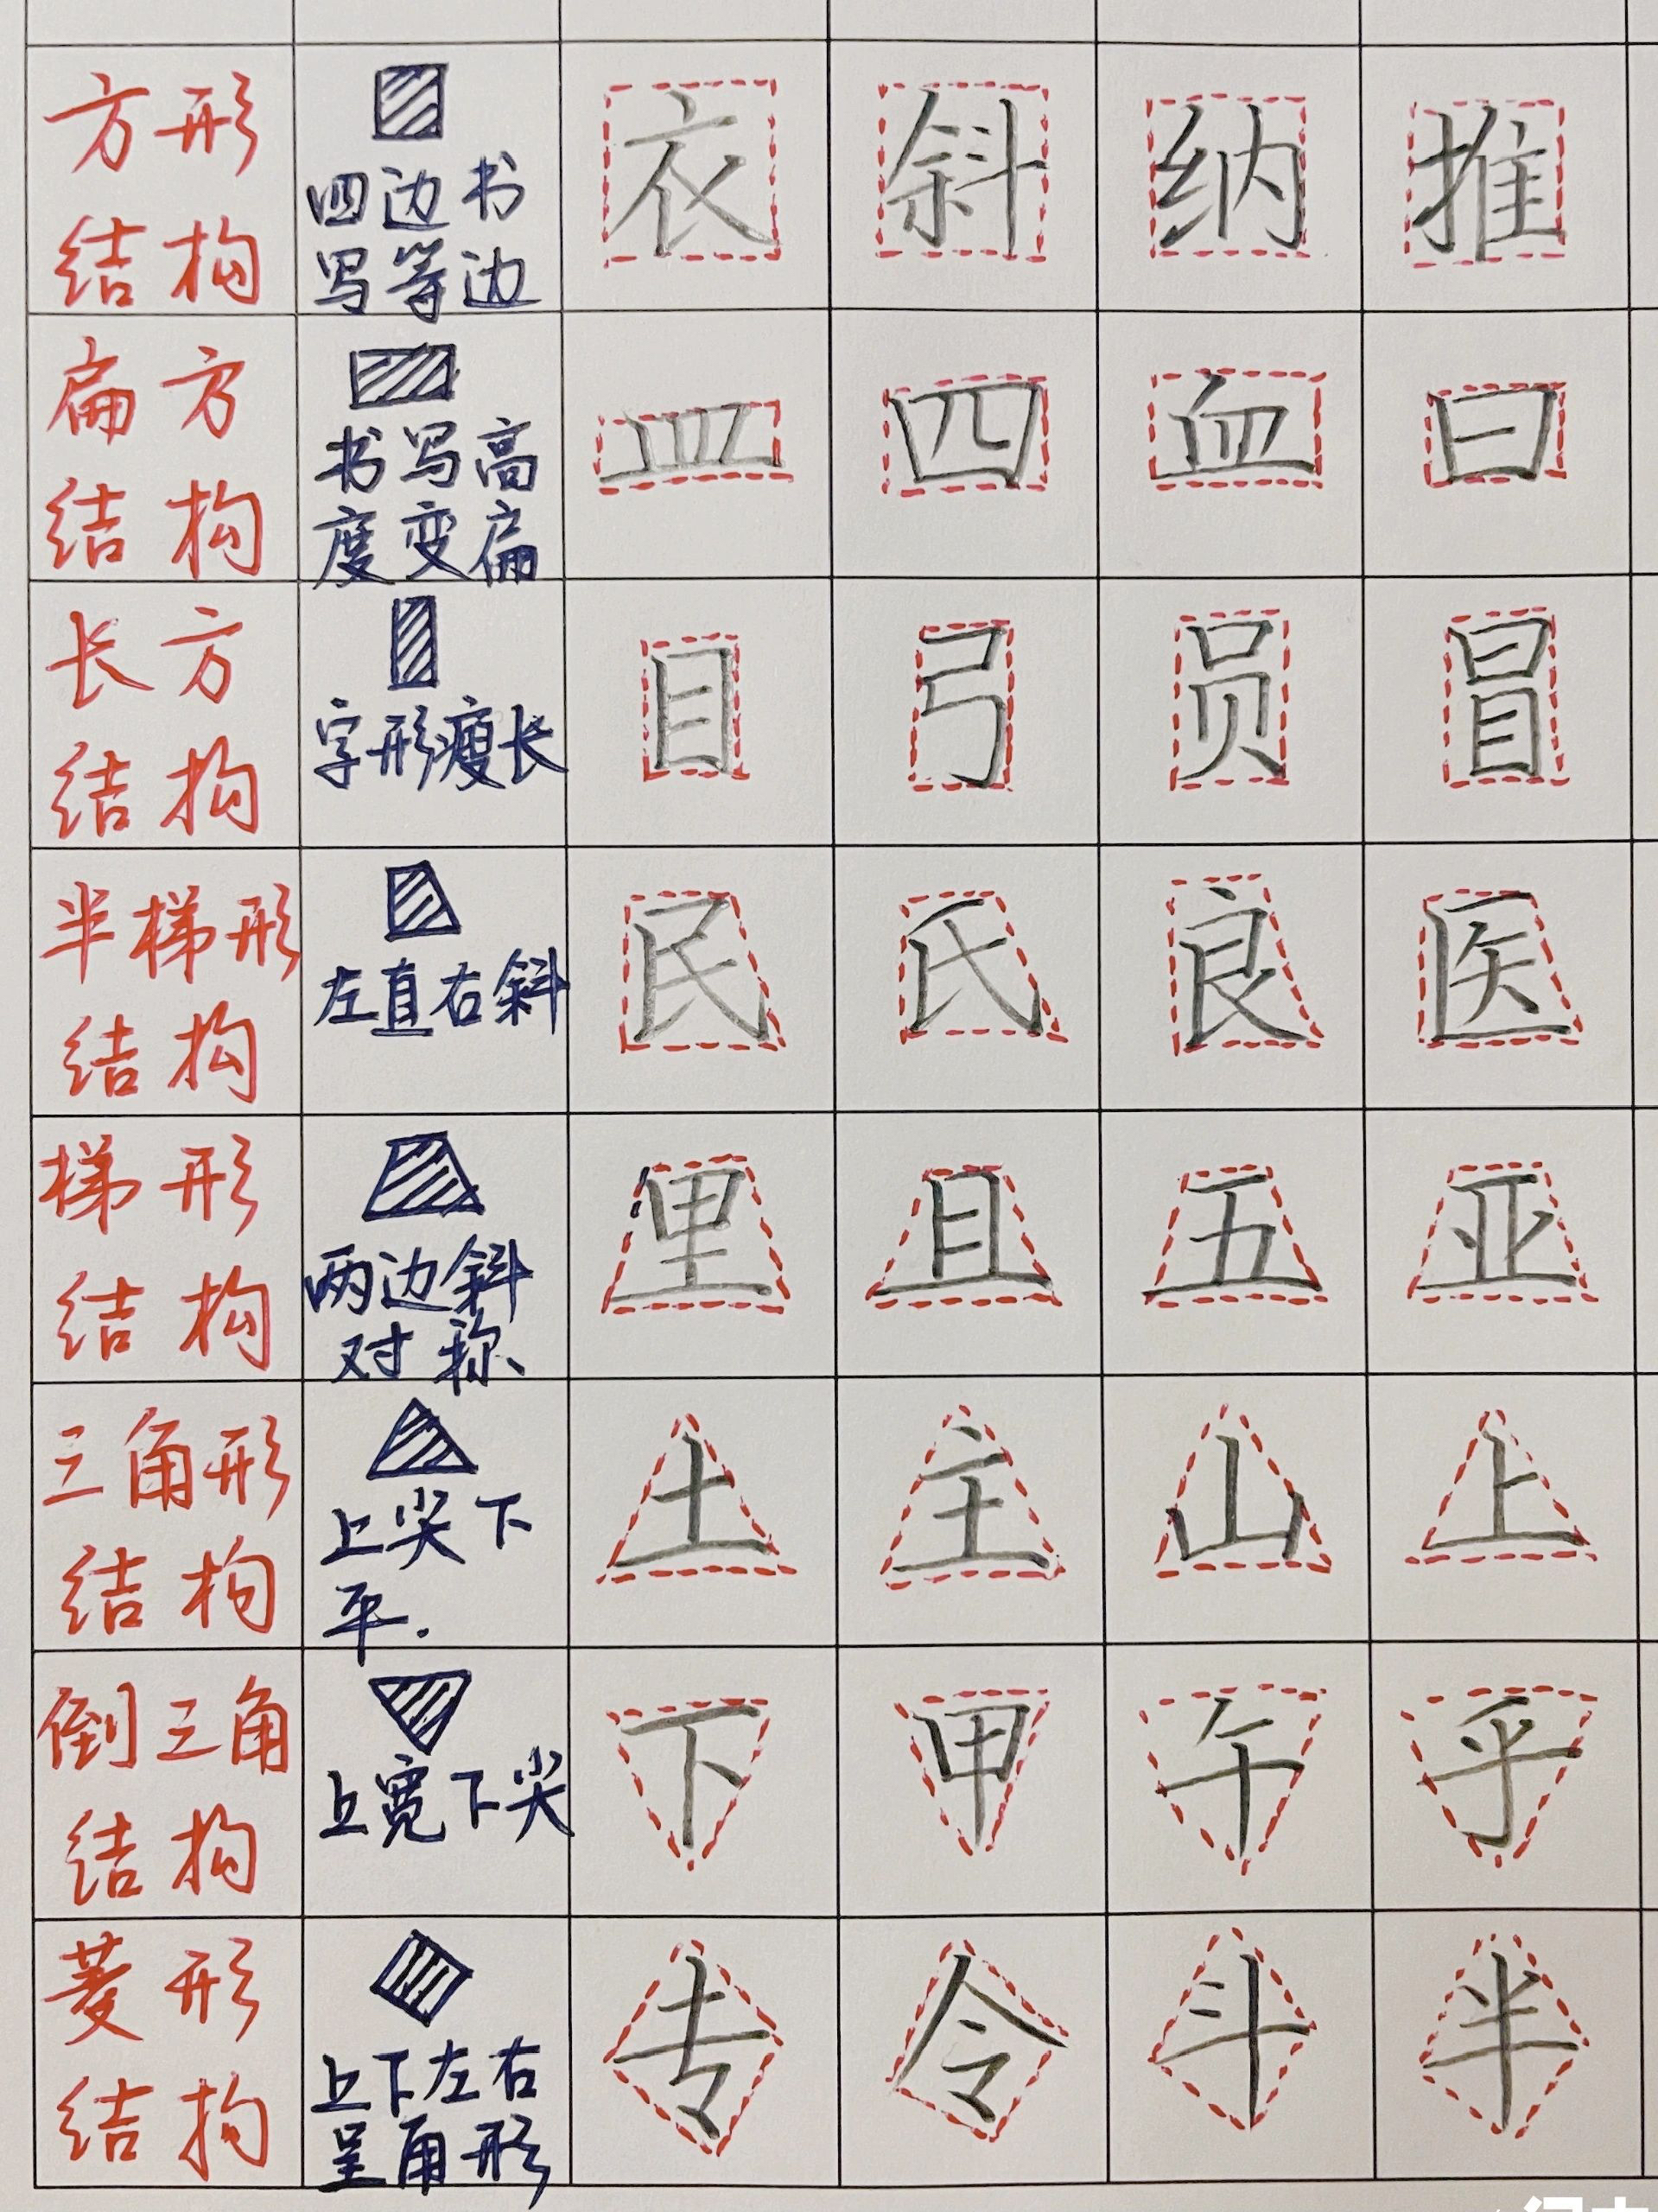 方形
结构
四边书
写等边
衣 斜 纳 推
扁方
结构
书写高
度变扁
皿 四 血 曰
长方
结构
字形瘦长
目 弓 员 冒
半梯形
结构
左直右斜
民 氏 良 医
梯形
结构
两边斜
对称、
里 且 五 亚
三角形
结构
上尖下
平.
土 主 山 上
倒三角
结构
上宽下尖
下 甲 午 乎
菱形
结构
上下左右
呈角形
专 令 斗 半